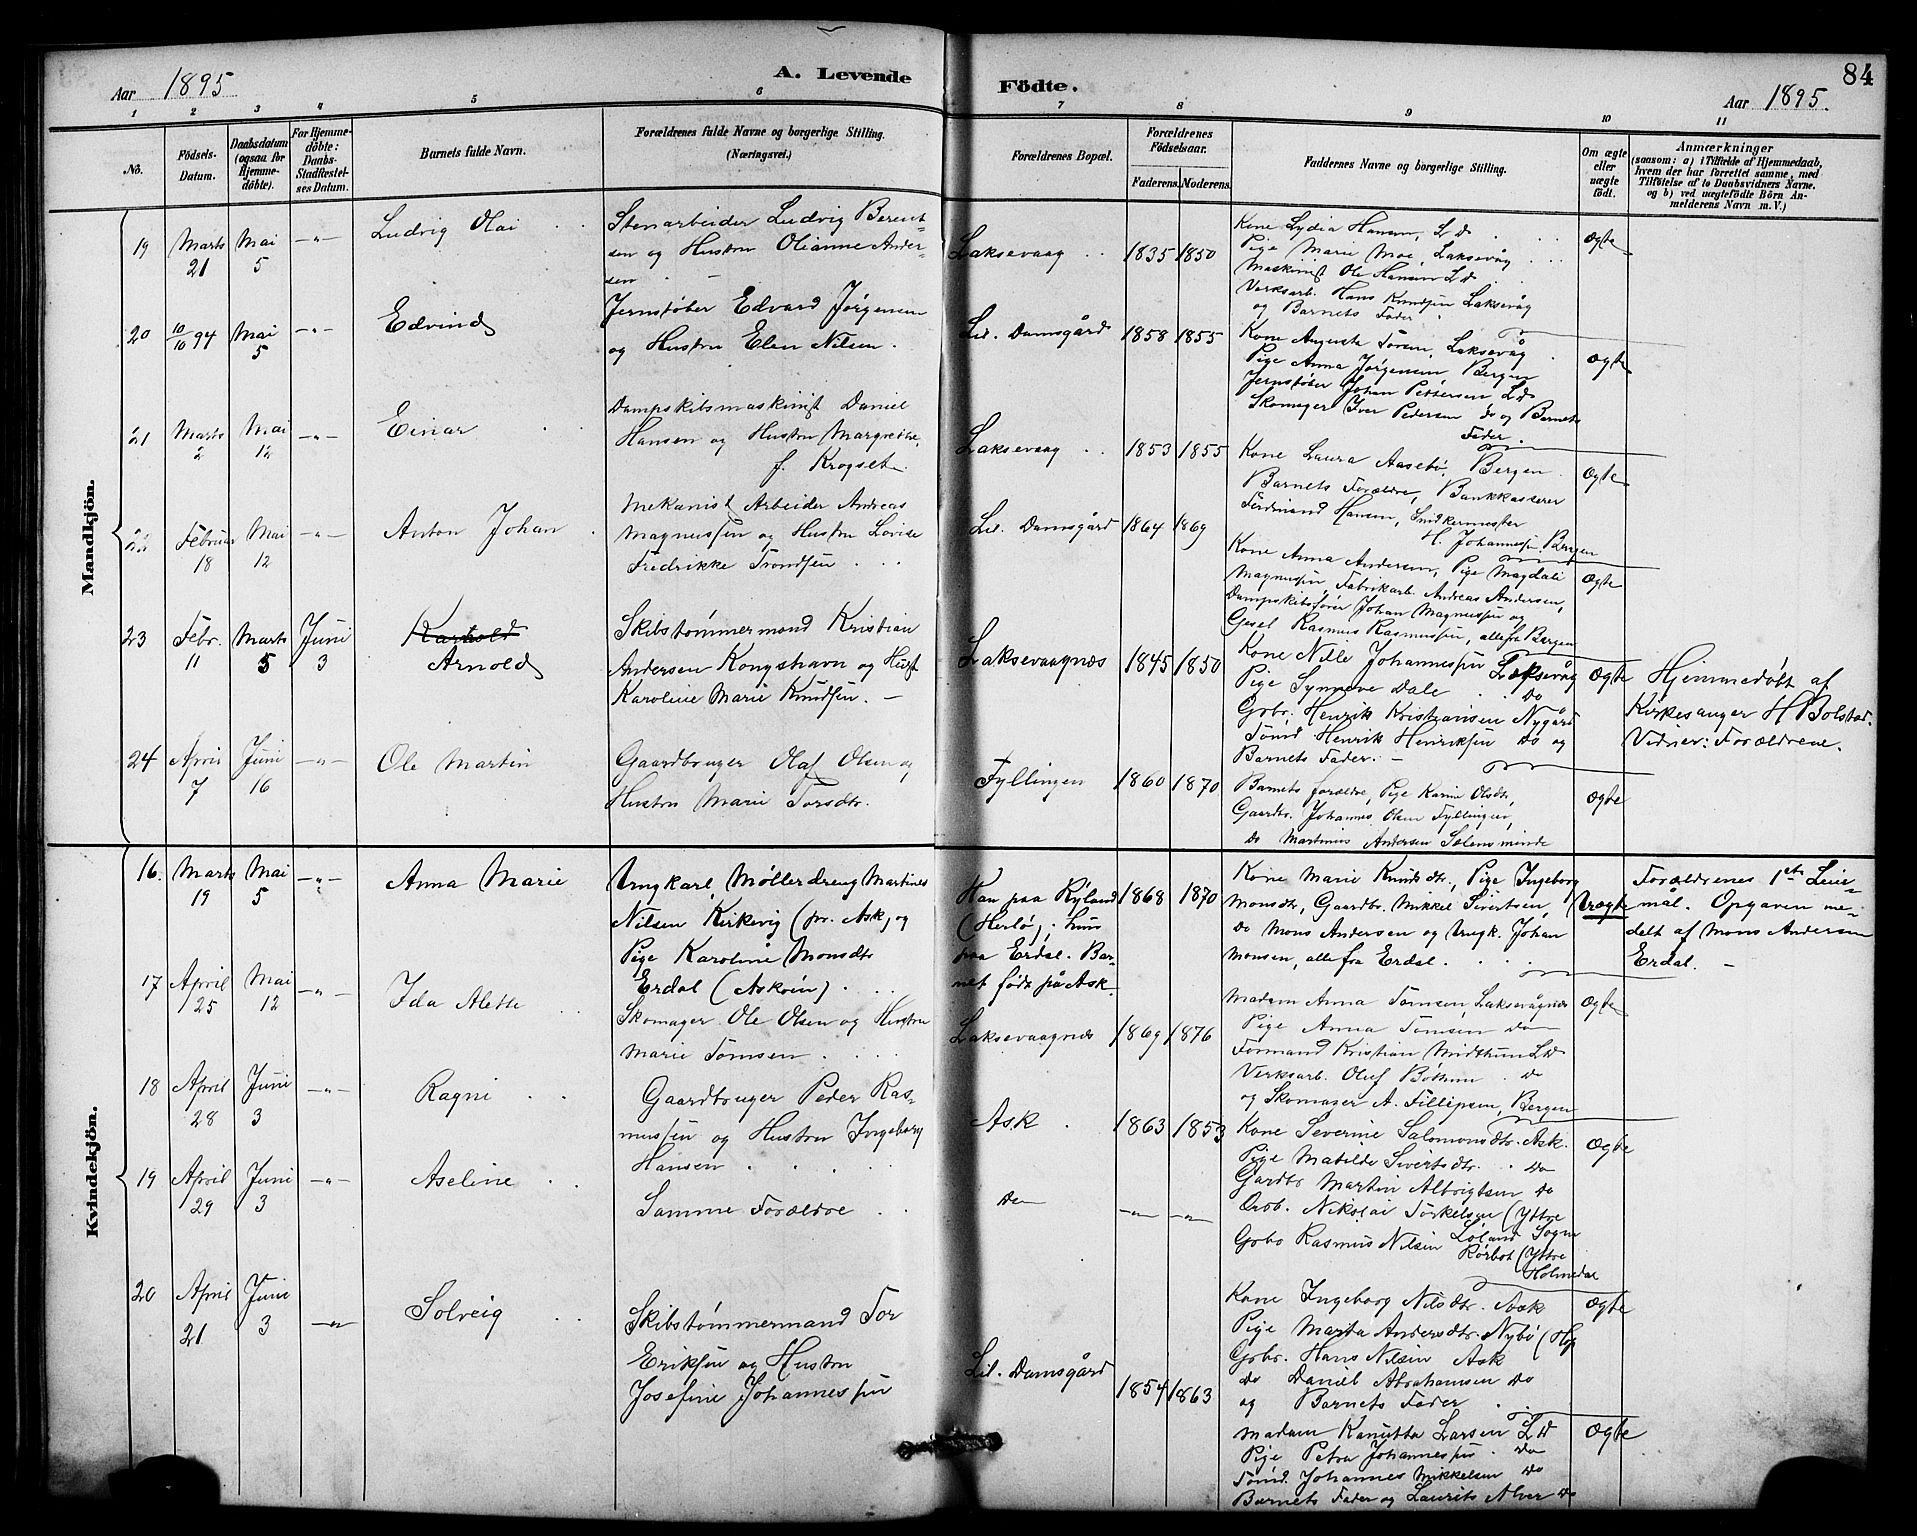 84
Aar 1895
A. Levende Födte.
Aar 1895.
1 2 3 4 5 6 7 8 9 10 11
No.
Födsels-
Datum.
Daabsdatum
(ogsaa for
Hjemme-
döbte).
For Hjemme-
döbte:
Daabs-
Stadfæstel-
ses Datum.
Barnets fulde Navn.
Forældrenes fulde Navne og borgerlige Stilling.
(Næringsvei.)
Forældrenes Bopæl.
Forældrenes
Födselsaar.
Faderens. Moderens.
Faddernes Navne og borgerlige Stilling.
Om ægte
eller
uægte
födt.
Anmærkninger
(saasom: a) i Tilfælde af Hjemmedaab,
hvem der har forrettet samme, med
Tilföielse af to Daabsvidners Navne.
og b) ved uægtefödte Börn An-
melderens Navn m. V.)
Mandkjön.
19
Marts
21
Mai
5
-"-
Ludvig Olai
Stenarbeider Ludvig Berent-
sen og Hustru Olianne Ander-
sen
Laksevaag
1835 1850
Kone Lydia Hansen, Ld
Pige Marie Moe, Laksevåg
Maskinist Ole Hansen Ld.
Verksarb. Hans Knudsen Laksevåg
og Barnets Fader
Ægte
20
10/10 94
Mai
5
-"-
Edvind
Jernstøber Edvard Jørgensen
og Hustru Elen Nilsen.
Lil. Damsgård
1858 1855
Kone Augusta Toresen, Laksevåg
Pige Anna Jørgensen Bergen
Jernstøber Johan Pettersen Ld.
Skomager Iver Pedersen do og Barnets
Fader.
Ægte
21
Marts
2
Mai
12
-"-
Einar
Dampskibsmaskinist Daniel
Hansen og Hustru Margrethe
f. Krogset
Laksevaag
1853 1855
Kone Laura Aasebø, Bergen
Barnets Forældre, Bankkasserer
Ferdinand Hansen, Snidkermester
H. Johannessen, Bergen
Ægte
22
Februar
18
Mai
12
-"-
Anton Johan
Mekanisk Arbeider Andreas
Magnussen og Hustru Lovise
Fredrikke Trondsen
Lil. Damsgård
1864 1869
Kone Anna Andersen, Pige Magdali
Magnussen, Fabrikarb. Andreas Andersen,
Dampskibsfører Johan Magnussen og
Gesel Rasmus Rasmussen, alle fra Bergen
Ægte
23
Febr.
11
Marts
5
Juni
3
Karhold
Arnold
Skibstømmermand Kristian
Andersen Kongshavn og Hust
Karoline Marie Knudsen. -
Laksevaagnæs
1845 1850
Kone Nille Johannessen Laksevåg
Pige Synneve Dale Do
Grbr. Henrik Kristiansen Nygård
Tømd Henrik Henriksen Do og
Barnets Fader. -
Ægte
Hjemmedøbt af
Kirkesanger H Bolstad.
Vidner: Forældrene.
24
April
7
Juni
16
-"-
Ole Martin
Gaardbruger Olaf Olsen og
Hustru Marie Torsdtr.
Fyllingen
1860 1870
Barnets forældre, Pige Karine Olsdtr,
Gaardbr. Johannes Olsen Fyllingen,
do Martinus Andersen Sælensminde
Ægte
Kvindekjön.
16.
Marts
19
Mai
5
-"-
Anna Marie
Ungkarl Møllerdreng Martines
Nilsen Kirkevig (pr. Ask) og
Pige Karoline Monsdtr
Erdal (Askøen).
Han paa Ryland
(Herlø); hun
paa Erdal. Bar-
net født på Ask.
1868 1870
Kone Marie Knudsdtr., Pige Ingeborg
Monsdtr, Gaardbr. Mikkel Sivertsen,
Do Mons Andersen og Ungk. Johan
Monsen, alle fra Erdal.
Uægte
Forældrenes 1ste Leier-
mål. Opgaven me-
delt af Mons Andersen
Erdal. -
17
April
25
Mai
12
-"-
Ida Alette
Skomager Ole Olsen og Hustru
Marie Tomsen
Laksevaagnæs
1869 1876
Madam Anna Tomsen, Laksevågnæs
Pige Anna Tomsen do
Formand Kristian Midthun Ld
Verksarb. Oluf Bøthun do
og Skomager A. Fillipsen, Bergen
Ægte
18
April
28
Juni
3
-"-
Ragni
Gaardbruger Peder Ras-
mussen og Hustru Ingeborg
Hansen
Ask
1863 1853
Kone Severine Salomonsdtr. Ask.
Pige Matilde Sivertsdtr. Do
Gardbr Martin Albrigtsen Do
Grbr. Nikolai Torkelsen (Yttre
Løland Sogn
Grbr Rasmus Nilsen Rørbot (Yttre
Holmedal
Ægte
19
April
29
Juni
3
-"-
Aseline
Samme Forældre
Do
-"- -"-
Kone Ingeborg Nilsdtr. Ask
Pige Marta Andersdtr. Nybø (Hop
Grbr. Hans Nilsen Ask
do Daniel Abrahamsen Do
og Barnets Fader
Ægte
20
April
21
Juni
3
-"-
Solveig
Skibstømmermand Tor
Eriksen og Hustru
Josefine Johannessen
Lil. Damsgård
1854 1863
Madam Kanutta Larsen Ld
Pige Petra Johannessen Do
Tømd. Johannes Mikkelsen Do
Barnets Fader og Laurits Alver Do
Ægte